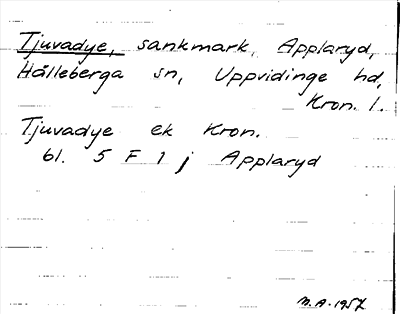 Tjuvadye, sankmark, Applaryd,
Hälleberga sn, Uppvidinge hd,
Kron. l.
Tjuvadye ek Kron.
bl. 5 F 1 j Applaryd
M.A. 1957